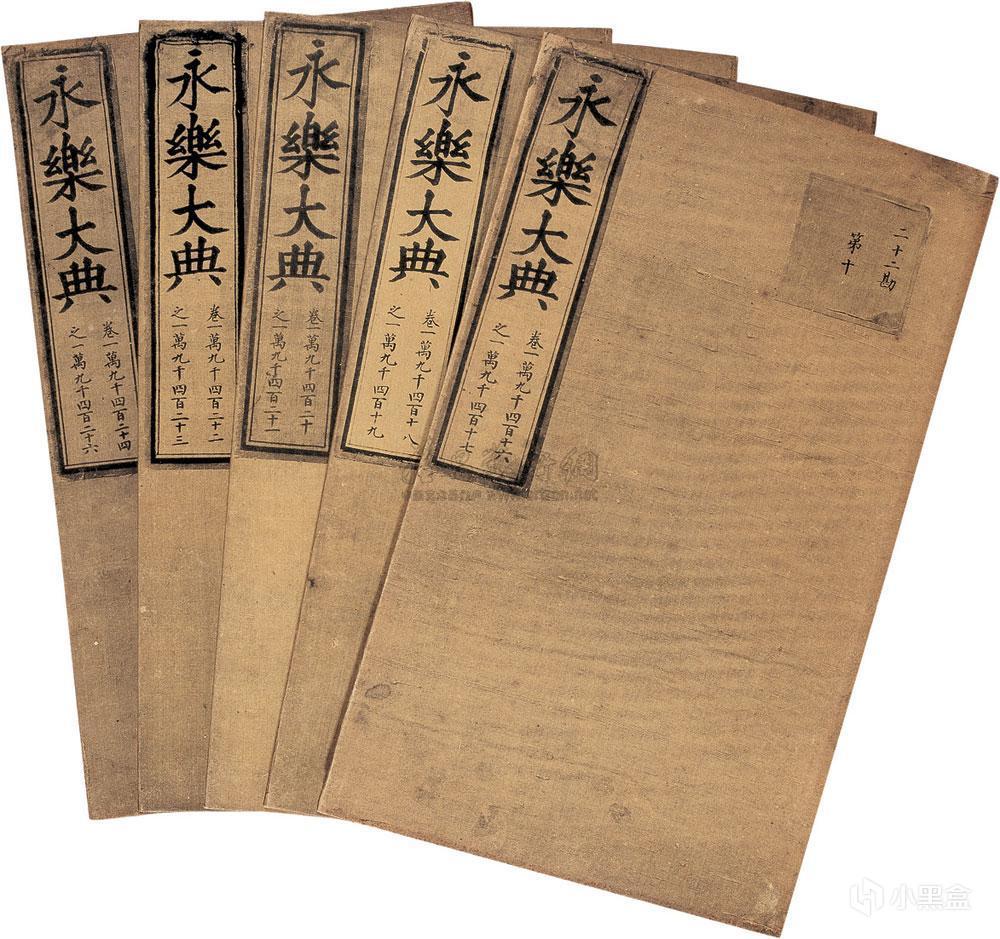 永樂大典
卷一萬九千四百十六
之一萬九千四百十七
二十二勘
第十
永樂大典
卷一萬九千四百十八
之一萬九千四百十九
永樂大典
卷一萬九千四百二十
之一萬九千四百二十一
永樂大典
卷一萬九千四百二十二
之一萬九千四百二十三
永樂大典
卷一萬九千四百二十四
之一萬九千四百二十六
小黑盒